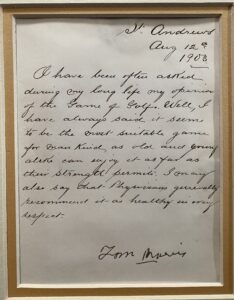 St. Andrews
Aug 12th
1903
I have been often asked
during my long life my opinion
of the Game of Golf. Well, I
have always said it seem
to be the most suitable game
for Mankind, as old and young
alike can enjoy it as far as
their strength permits. I may
also say that Physicians generally
recommend it as healthy in every
respect.
Tom Morris